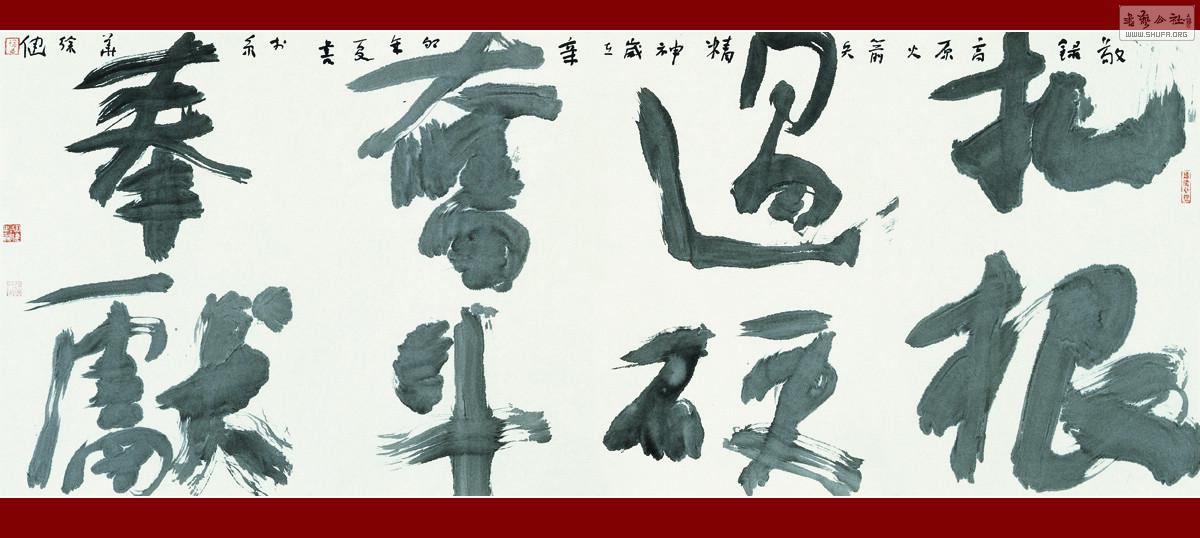 扎根
過硬
奮斗
奉獻
敬錄高原火箭兵精神歲在辛卯年夏書於京華徐健
書藝公社
WWW.SHUFA.ORG